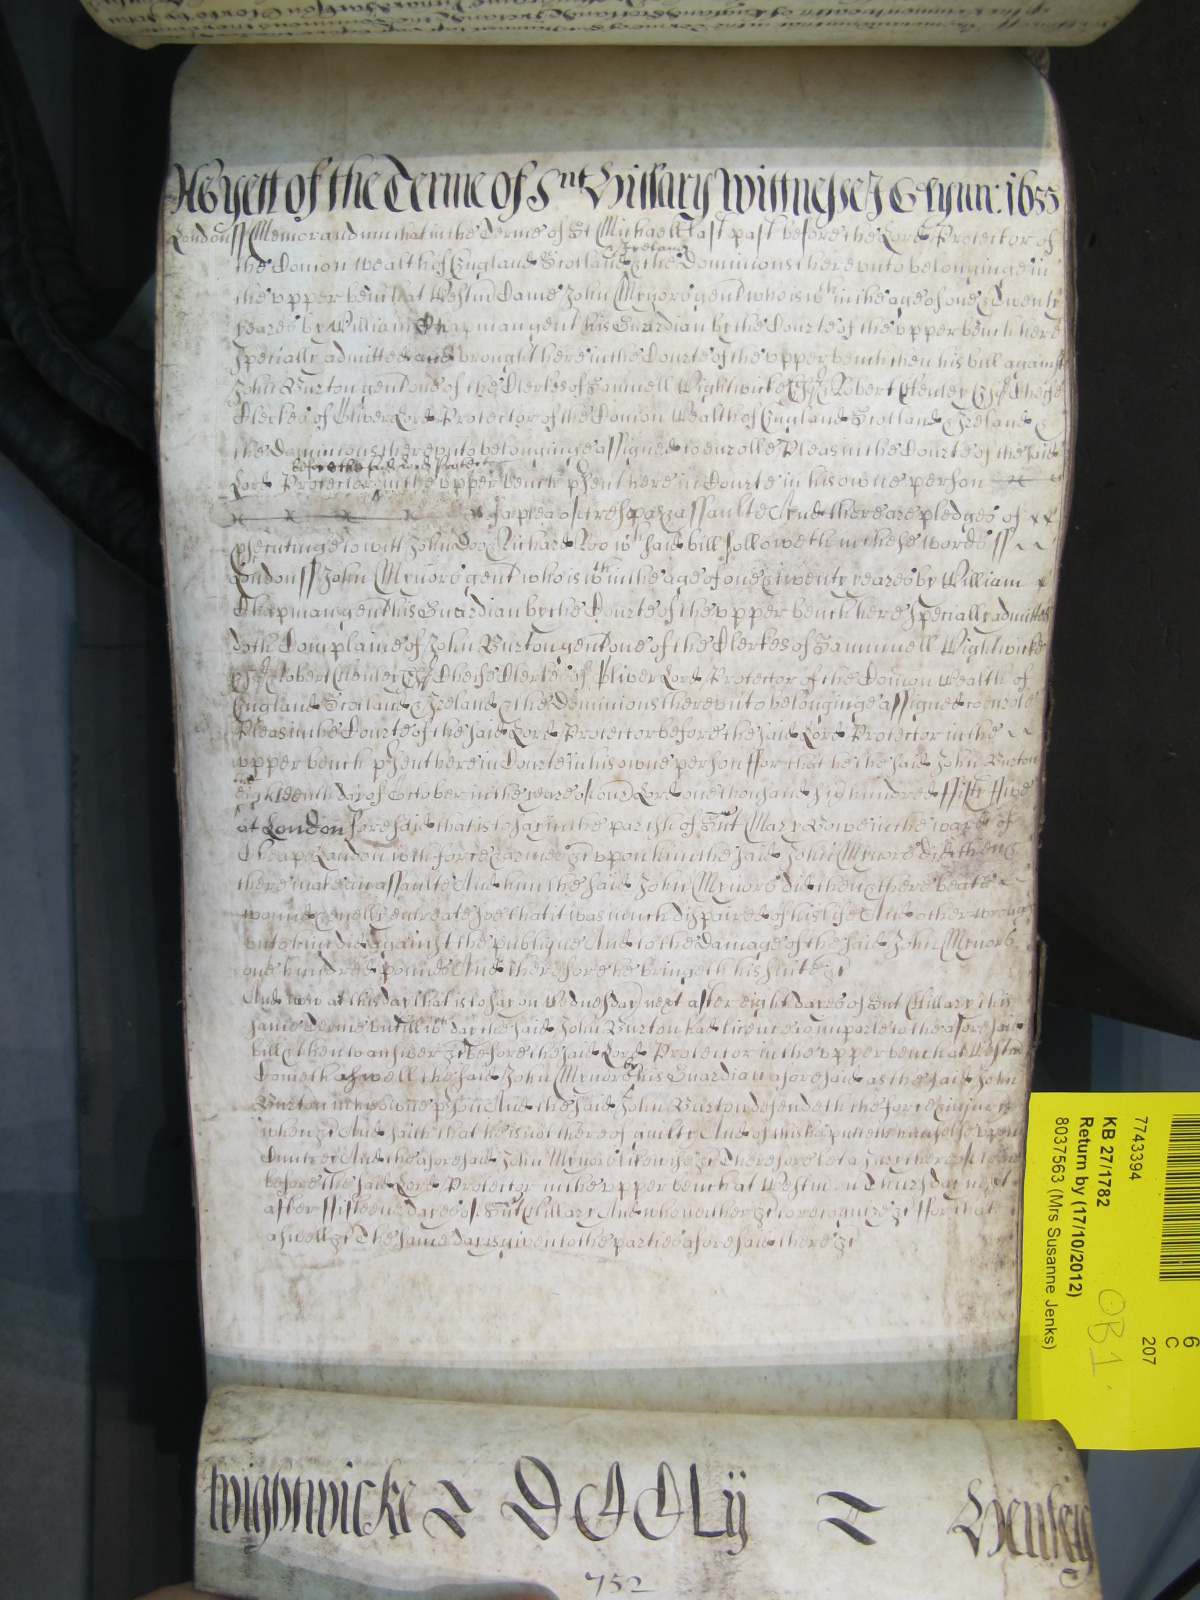 As yett of the Terme of Snt Hillary Wittnesse J Glynn: 1655
London ss Memorandum that in the Terme of St Michaell last past before the Lord Protector of
Ireland
the Comon wealth of England Scotland & the Dominions there unto belonginge in
the upper bench at Westm Came John Mynors gent who is wth in the age of one & Twenty
yeares by William Chapman gent his Guardian by the Courte of the upper bench here
specially admitted and brought here in the Courte of the upper bench then his bill against
John Burton gent one of the Clerkes of Samuell Wightwicke Esqr & Robert Henley Esqr Cheife
Clerkes of Oliver Lord Protector of the Comon Wealth of England Scotland & Ireland &
the dominions thereunto belonginge assigned to enrolle Pleas in the Courte of the said
before the said Lord Protector
Lord Protector in the upper bench psent here in Courte in his owne person
for plea of trespas & assaulte And there are pledges of
psecutinge to witt John Doo & Richard Roo wch said bill followeth in these words ss
London ss John Mynors gent who is wth in the age of one & twenty yeares by William
Chapman gent his Guardian by the Courte of the upper bench here specially admitted
doth Complaine of John Burton gent one of the Clerkes of Sammuell Wightwicke
Esqr & Robert Henley Esqr Cheife Clerkes of Oliver Lord Protector of the Comon Wealth of
England Scotland & Ireland & the Dominions thereunto belonginge assigned to enrole
Pleas in the Courte of the said Lord Protector before the said Lord Protector in the
upper bench psent here in Courte in his owne person ffor that he the said John Burton
the
eighteenth day of October in the yeare of our Lord one thousand six hundred ffiftie ffive
at London foresaid that is to say in the parish of Snt Mary Bowe in the ward of
Cheap London with force & armes &c upon him the said John Mynors did then &
there make an assaulte And him the said John Mynors did then & there beate
wound & evelly entreate soe that it was much dispaired of his life And other wrongs
unto him did against the publique And to the damage of the said John Mynors
one hundred pounds And therefore he bringeth his suite &c
And now at this day that is to say on Wednesday next after eight dayes of Snt Hillary this
same Terme untill wch day the said John Burton had licence to imparle to the aforesaid
bill & then to answer &c before the said Lord Protector in the upper bench at Westm
by
Cometh aswell the said John Mynors his Guardian aforesaid as the said John
Burton in his owne pson And the said John Burton defendeth the force & injury
when &c And saith that he is not thereof guilty And of this he putteth himselfe upon
Cuntrey And the aforesaid John Mynors likewise &c Therefore let a Jury thereof come
before the said Lord Protector in the upper bench at Westm on Thursday next
after ffifteene dayes of Snt Hillary And who neither &c to recognize &c ffor that
aswell &c The same day is given to the parties aforesaid there &c
Wightwicke &
&
Henley
752
7743394
KB 27/1782
Return by (17/10/2012)
8037563 (Mrs Susanne Jenks)
OB1
6
C
207